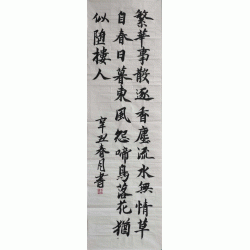 繁華事散逐香塵流水無情草
自春日暮東風怨啼鳥落花猶
似随樓人
辛丑春月書